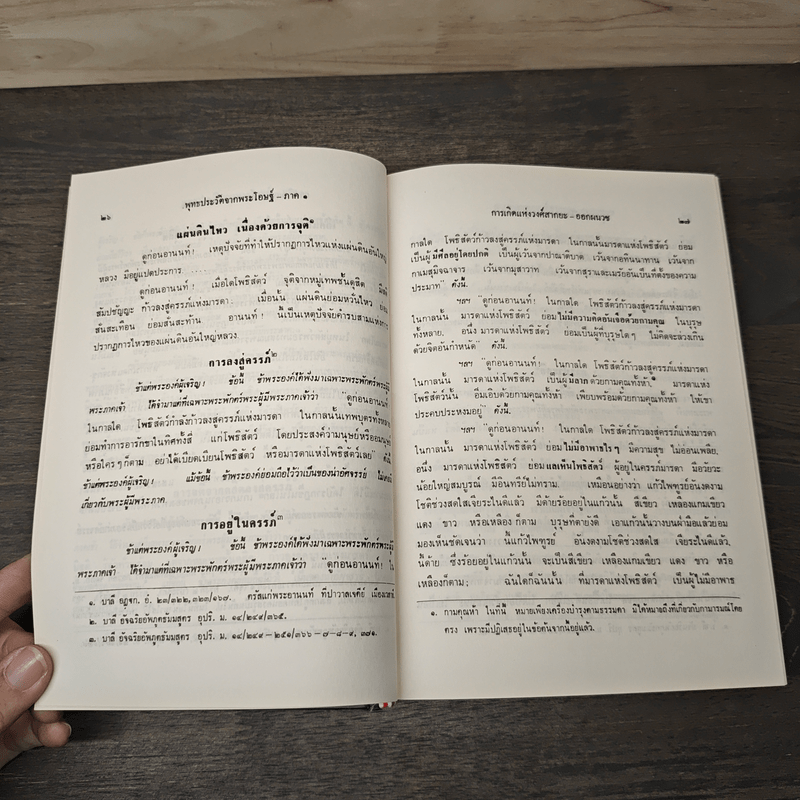 ๒๖
พุทธประวัติจากพระโอษฐ์ – ภาค ๑
แผ่นดินไหว เนื่องด้วยการจุติ๑
ดูก่อนอานนท์! เหตุปัจจัยที่ทำให้ปรากฏการไหวแห่งแผ่นดินอันใหญ่
หลวง มีอยู่แปดประการ. ....
ดูก่อนอานนท์! เมื่อใดโพธิสัตว์ จุติจากหมู่เทพชั้นดุสิต มีสติ
สัมปชัญญะ ก้าวลงสู่ครรภ์แห่งมารดา. เมื่อนั้น แผ่นดินย่อมหวั่นไหว ย่อม
สั่นสะเทือน ย่อมสั่นสะท้าน. อานนท์! นี้เป็นเหตุปัจจัยคำรบสามแห่งการ
ปรากฏการไหวของแผ่นดินอันใหญ่หลวง.
การลงสู่ครรภ์๒
ข้าแต่พระองค์ผู้เจริญ! ข้อนี้ ข้าพระองค์ได้ฟังมาเฉพาะพระพักตร์พระผู้มี
พระภาคเจ้า ได้จำมาแต่ที่เฉพาะพระพักตร์พระผู้มีพระภาคเจ้าว่า "ดูก่อนอานนท์!
ในกาลใด โพธิสัตว์กำลังก้าวลงสู่ครรภ์แห่งมารดา ในกาลนั้นเทพบุตรทั้งหลาย
ย่อมทำการอารักขาในทิศทั้งสี่ แก่โพธิสัตว์ โดยประสงค์ว่ามนุษย์หรืออมนุษย์
หรือใครๆก็ตาม อย่าได้เบียดเบียนโพธิสัตว์ หรือมารดาแห่งโพธิสัตว์เลย" ดังนี้.
ข้าแต่พระองค์ผู้เจริญ! แม้ข้อนี้ ข้าพระองค์ย่อมถือไว้ว่าเป็นของน่าอัศจรรย์ ไม่เคยมี
เกี่ยวกับพระผู้มีพระภาค.
การอยู่ในครรภ์๓
ข้าแต่พระองค์ผู้เจริญ! ข้อนี้ ข้าพระองค์ได้ฟังมาเฉพาะพระพักตร์พระผู้มี
พระภาคเจ้า ได้จำมาแต่ที่เฉพาะพระพักตร์พระผู้มีพระภาคเจ้าว่า "ดูก่อนอานนท์! ใน
๑. บาลี อฏฺฐก. อํ. ๒๓/๓๒๒,๓๒๓/๑๖๗. ตรัสแก่พระอานนท์ ที่ปาวาลเจดีย์ เมืองเวสาลี
๒. บาลี อัจฉริยอัพภูตธัมมสูตร อุปริ. ม. ๑๔/๒๔๙/๓๖๕.
๓. บาลี อัจฉริยอัพภูตธัมมสูตร อุปริ. ม. ๑๔/๒๔๙–๒๕๑/๓๖๖–๗–๘–๙, ๓๗๑.
การเกิดแห่งวงศ์สากยะ – ออกผนวช
๒๗
กาลใด โพธิสัตว์ก้าวลงสู่ครรภ์แห่งมารดา ในกาลนั้นมารดาแห่งโพธิสัตว์ ย่อม
เป็นผู้มีศีลอยู่โดยปกติ เป็นผู้เว้นจากปาณาติบาต เว้นจากอทินนาทาน เว้นจาก
กาเมสุมิจฉาจาร เว้นจากมุสาวาท เว้นจากสุราและเมรัยอันเป็นที่ตั้งของความ
ประมาท" ดังนี้.
ฯลฯ "ดูก่อนอานนท์! ในกาลใด โพธิสัตว์ก้าวลงสู่ครรภ์แห่งมารดา
ในกาลนั้น มารดาแห่งโพธิสัตว์ ย่อมไม่มีความคิดอันเจือด้วยกามคุณ ในบุรุษ
ทั้งหลาย. อนึ่ง มารดาแห่งโพธิสัตว์ ย่อมเป็นผู้ที่บุรุษใดๆ ไม่คิดจะล่วงเกิน
ด้วยจิตอันกำหนัด" ดังนี้.
ฯลฯ "ดูก่อนอานนท์! ในกาลใด โพธิสัตว์ก้าวลงสู่ครรภ์แห่งมารดา
ในกาลนั้น มารดาแห่งโพธิสัตว์ เป็นผู้มีลาภด้วยกามคุณทั้งห้า๑ มารดาแห่ง
โพธิสัตว์นั้น อิ่มเอิบด้วยกามคุณทั้งห้า เพียบพร้อมด้วยกามคุณทั้งห้า ให้เขา
ประคบประหงมอยู่" ดังนี้.
ฯลฯ "ดูก่อนอานนท์! ในกาลใด โพธิสัตว์ก้าวลงสู่ครรภ์แห่งมารดา
ในกาลนั้น มารดาแห่งโพธิสัตว์ ย่อมไม่มีอาพาธใดๆ มีความสุข ไม่อ่อนเพลีย.
อนึ่ง มารดาแห่งโพธิสัตว์ ย่อมแลเห็นโพธิสัตว์ ผู้อยู่ในครรภ์มารดา มีอวัยวะ
น้อยใหญ่สมบูรณ์ มีอินทรีย์ไม่ทราม. เหมือนอย่างว่า แก้วไพฑูรย์อันงดงาม
โชติช่วงสดใสเจียระไนดีแล้ว มีด้ายร้อยอยู่ในแก้วนั้น สีเขียว เหลืองแกมเขียว
แดง ขาว หรือเหลืองก็ตาม บุรุษที่ตายังดี เอาแก้วนั้นวางบนฝ่ามือแล้วย่อม
มองเห็นชัดเจนว่า นี้แก้วไพฑูรย์ อันงดงามโชติช่วงสดใส เจียระไนดีแล้ว,
นี้ด้าย ซึ่งร้อยอยู่ในแก้วนั้น จะเป็นสีเขียว เหลืองแกมเขียว แดง ขาว หรือ
เหลืองก็ตาม; ฉันใดก็ฉันนั้น ที่มารดาแห่งโพธิสัตว์ เป็นผู้ไม่มีอาพาธ
๑. กามคุณห้า ในที่นี้ หมายเพียงเครื่องบำรุงตามธรรมดา มิได้หมายถึงที่เกี่ยวกับกามารมณ์โดย
ตรง เพราะมีปฏิเสธอยู่ในข้อต้นจากนี้อยู่แล้ว.